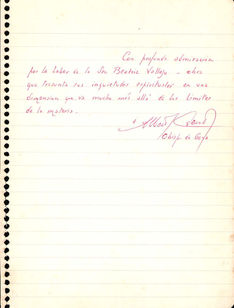 Con profunda admiración
por la labor de la Sra Beatriz Vallejo - obra
que trasunta sus inquietudes espirituales en una
dimensión que va mucho más allá de los límites
de la materia.
Obispo de Goya